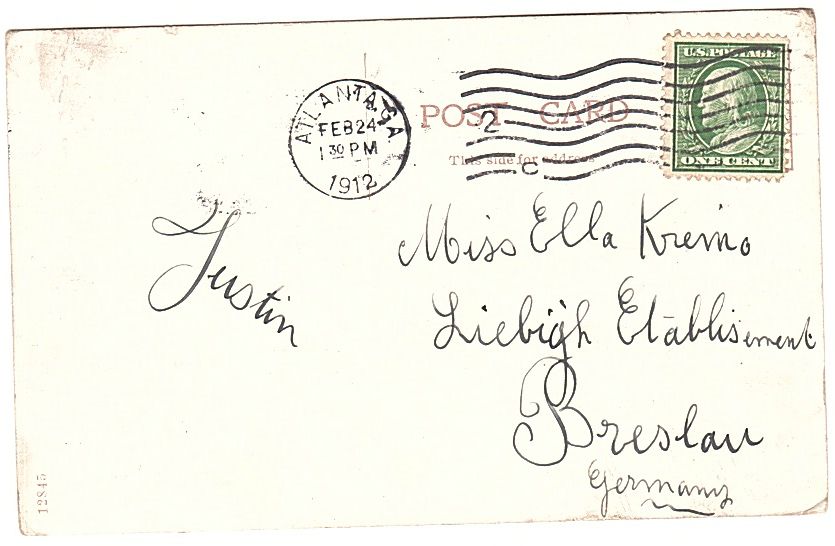 ATLANTA, GA.
FEB 24
1 30 PM
1912
2
C
POST CARD
This side for address
U.S. POSTAGE
ONE CENT
Miss Ella Kremo
Liebigh Etablisement
Breslau
Germany
Justin
12845